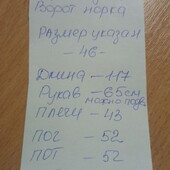 Ворот норка
размер указан
- 46 -
Длина - 117
Рукав - 65см
можно подв.
Плечи - 43
ПОГ - 52
ПОТ - 52